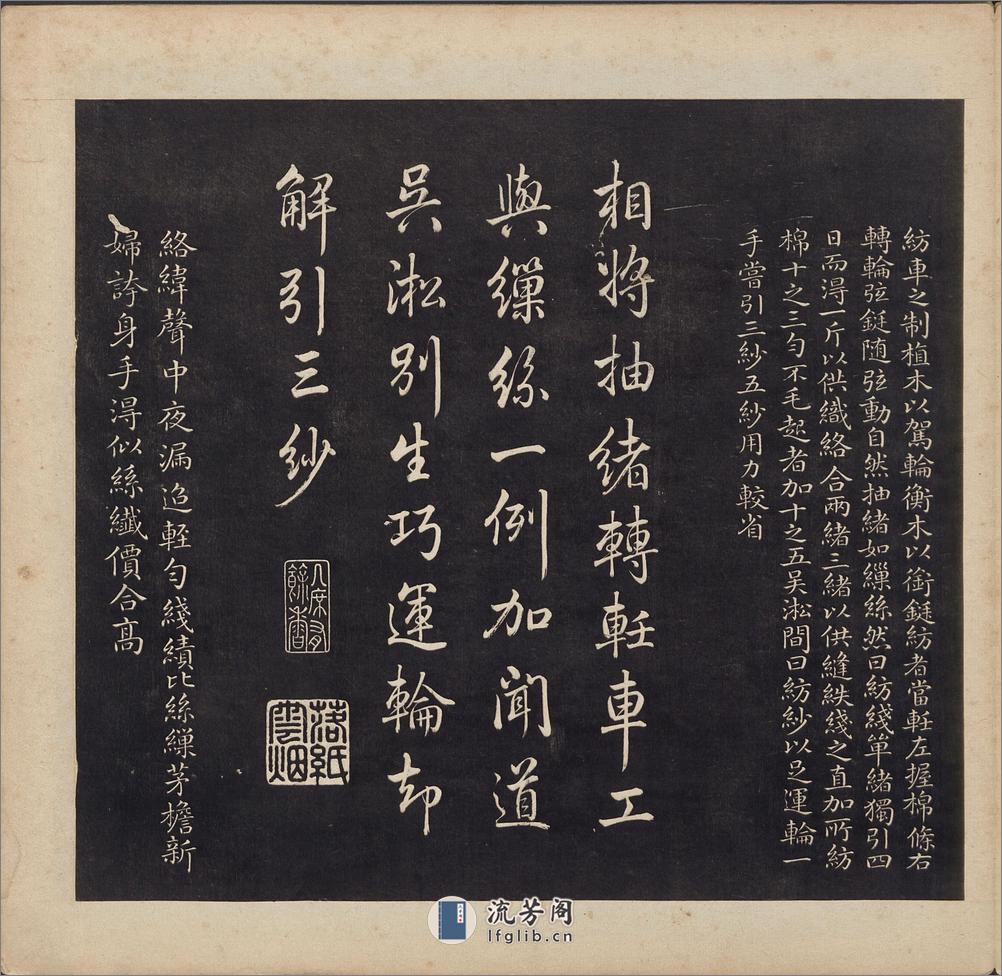 紡車之制植木以駕輪衡木以銜鋌紡者當軠左握棉條右
轉輪弦鋌随弦動自然抽緒如繅絲然曰紡綫單緒獨引四
日而得一斤以供織絡合兩緒三緒以供縫紩綫之直加所紡
棉十之三勻不毛起者加十之五吴淞間曰紡紗以足運輪一
手嘗引三紗五紗用力較省
相將抽緒轉軠車工
與繅絲一例加聞道
吳淞別生巧運輪却
解引三紗
八席有
餘香
落紙
雲烟
絡緯聲中夜漏迢輕勻綫績比絲繅茅檐新
婦誇身手得似絲纖價合髙
流芳阁
lfglib.cn